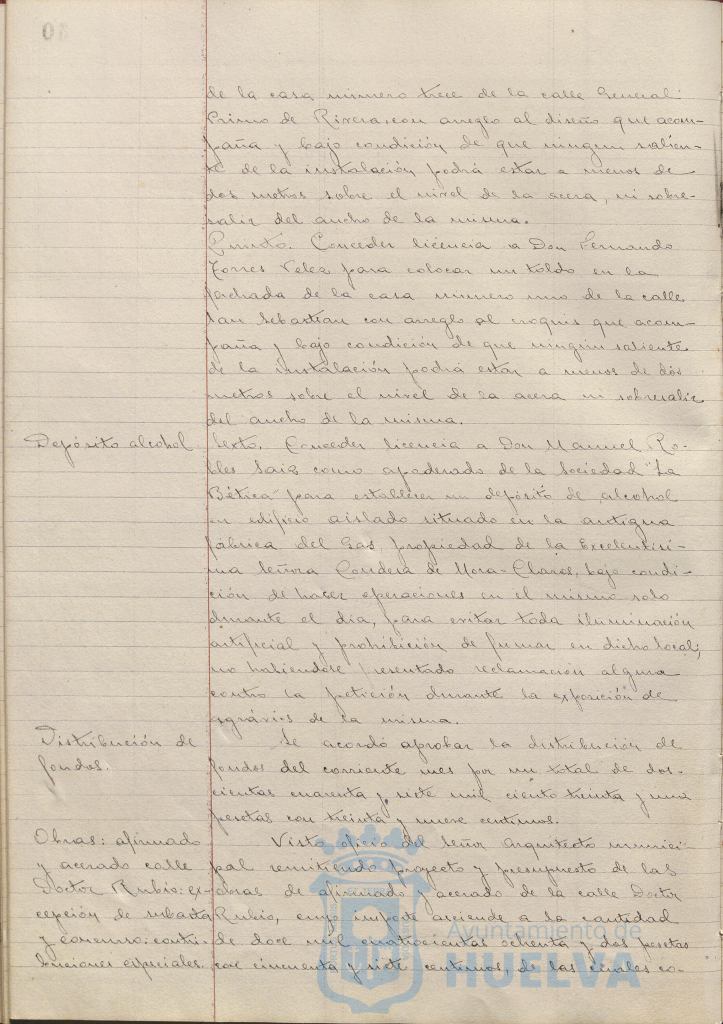 de la casa número trece de la calle General
Primo de Rivera, con arreglo al diseño que acom-
paña y bajo condición de que ningun salien-
te de la instalación podrá estar a menos de
dos metros sobre el nivel de la acera, ni sobre-
salir del ancho de la misma.
Quinto. Conceder licencia a Don Fernando
Torres Velez para colocar un toldo en la
fachada de la casa numero uno de la calle
San Sebastian con arreglo al croquis que acom-
paña y bajo condición de que ningún saliente
de la instalación podrá estar a menos de dos
metros sobre el nivel de la acera ni sobresalir
del ancho de la misma.
Depósito alcohol
Sexto. Conceder licencia a Don Manuel Ro-
bles Saiz como apoderado de la Sociedad "La
Bética" para establecer un depósito de alcohol
en edificio aislado situado en la antigua
fábrica del Gas, propiedad de la Excelentísi-
ma Señora Condesa de Mora-Claros, bajo condi-
ción de hacer operaciones en el mismo solo
durante el dia, para evitar toda iluminación
artificial y prohibición de fumar en dicho local;
no habiendose presentado reclamación alguna
contra la petición durante la exposición de
agrávios de la misma.
Distribución de
fondos.
Se acordó aprobar la distribución de
fondos del corriente mes por un total de dos-
cientas cuarenta y siete mil ciento treinta y una
pesetas con treinta y nueve centimos.
Obras: afirmado
y acerado calle
Doctor Rubio: ex-
cepción de subasta
y concurso: contri-
buciones especiales.
Visto oficio del Señor Arquitecto munici-
pal remitiendo proyecto y presupuesto de las
obras de afirmado y acerado de la calle Doctor
Rubio, cuyo importe asciende a la cantidad
de doce mil cuatrocientas ochenta y dos pesetas
con cincuenta y siete centimos, de las cuales co-
Ayuntamiento de
HUELVA